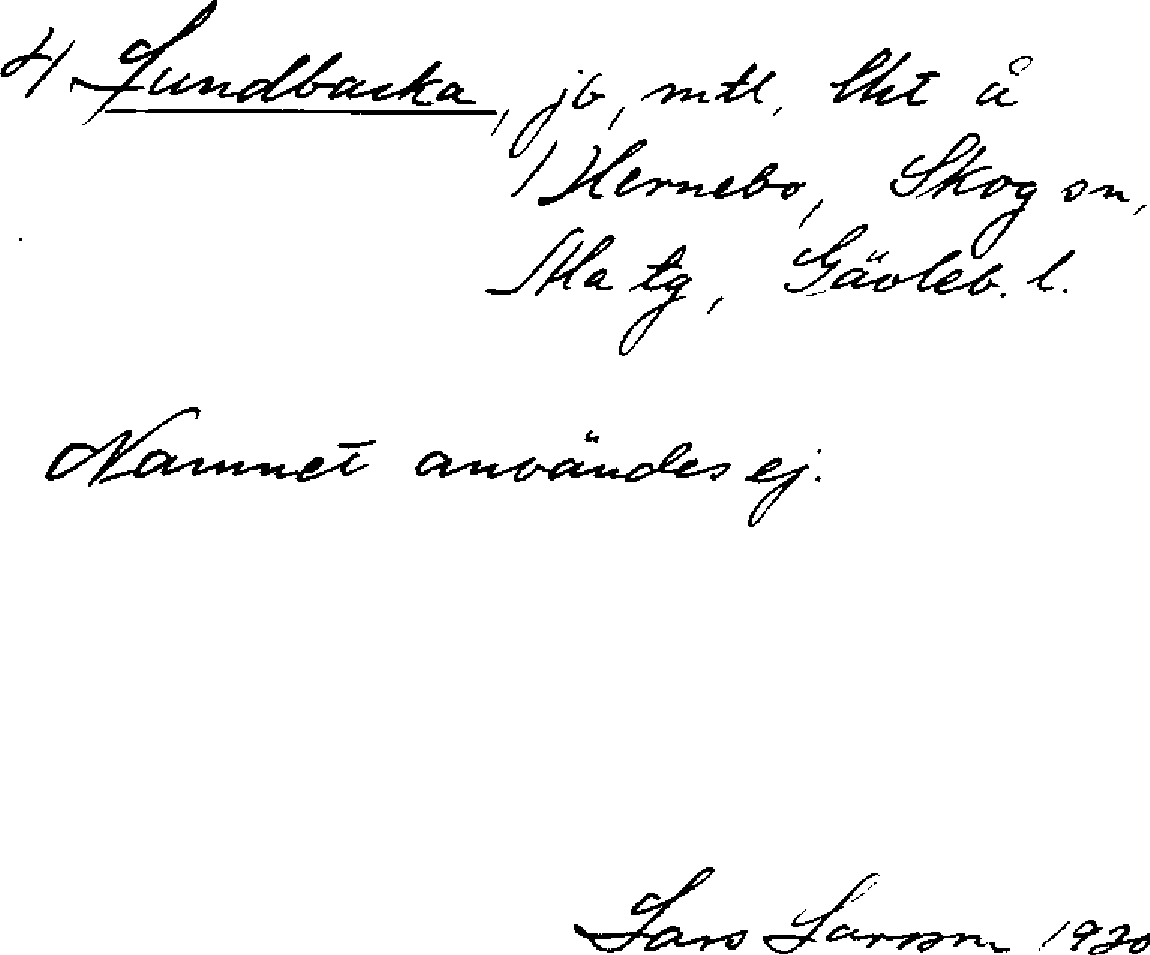 4) Lundbacka, jb, mtl, lht å
1 Hernebo, Skog sn,
Ala tg, Gävleb. l.
Namnet användes ej.
Lars Larsson 1920